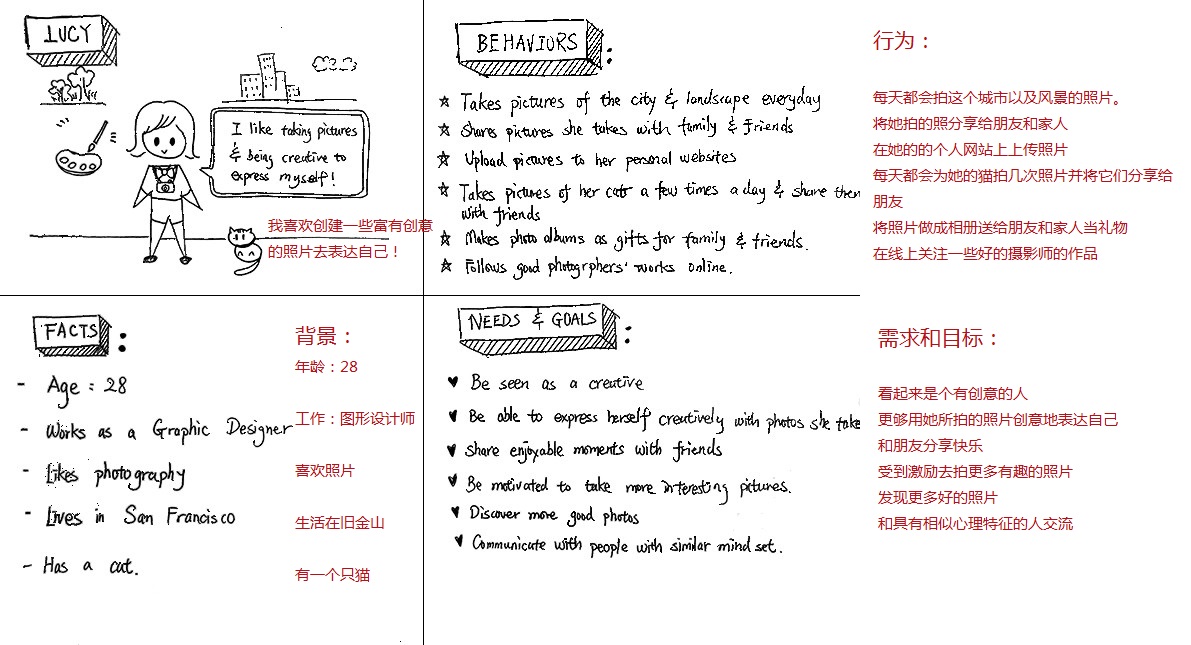 LUCY
I like taking pictures
& being creative to
express myself!
我喜欢创建一些富有创意
的照片去表达自己！
BEHAVIORS :
☆ Takes pictures of the city & landscape everyday
☆ Shares pictures she takes with family & friends
☆ Upload pictures to her personal websites
☆ Takes pictures of her cat a few times a day & share them
with friends
☆ Makes photo albums as gifts for family & friends.
☆ Follows good photogrphers' works online.
行为：
每天都会拍这个城市以及风景的照片。
将她拍的照分享给朋友和家人
在她的的个人网站上上传照片
每天都会为她的猫拍几次照片并将它们分享给
朋友
将照片做成相册送给朋友和家人当礼物
在线上关注一些好的摄影师的作品
FACTS :
- Age : 28
- Works as a Graphic Designer
- Likes photography
- Lives in San Francisco
- Has a cat.
背景：
年龄：28
工作：图形设计师
喜欢照片
生活在旧金山
有一个只猫
NEEDS & GOALS :
♥ Be seen as a creative
♥ Be able to express herself creatively with photos she take
♥ Share enjoyable moments with friends
♥ Be motivated to take more interesting pictures.
♥ Discover more good photos
♥ Communicate with people with similar mind set.
需求和目标：
看起来是个有创意的人
更够用她所拍的照片创意地表达自己
和朋友分享快乐
受到激励去拍更多有趣的照片
发现更多好的照片
和具有相似心理特征的人交流